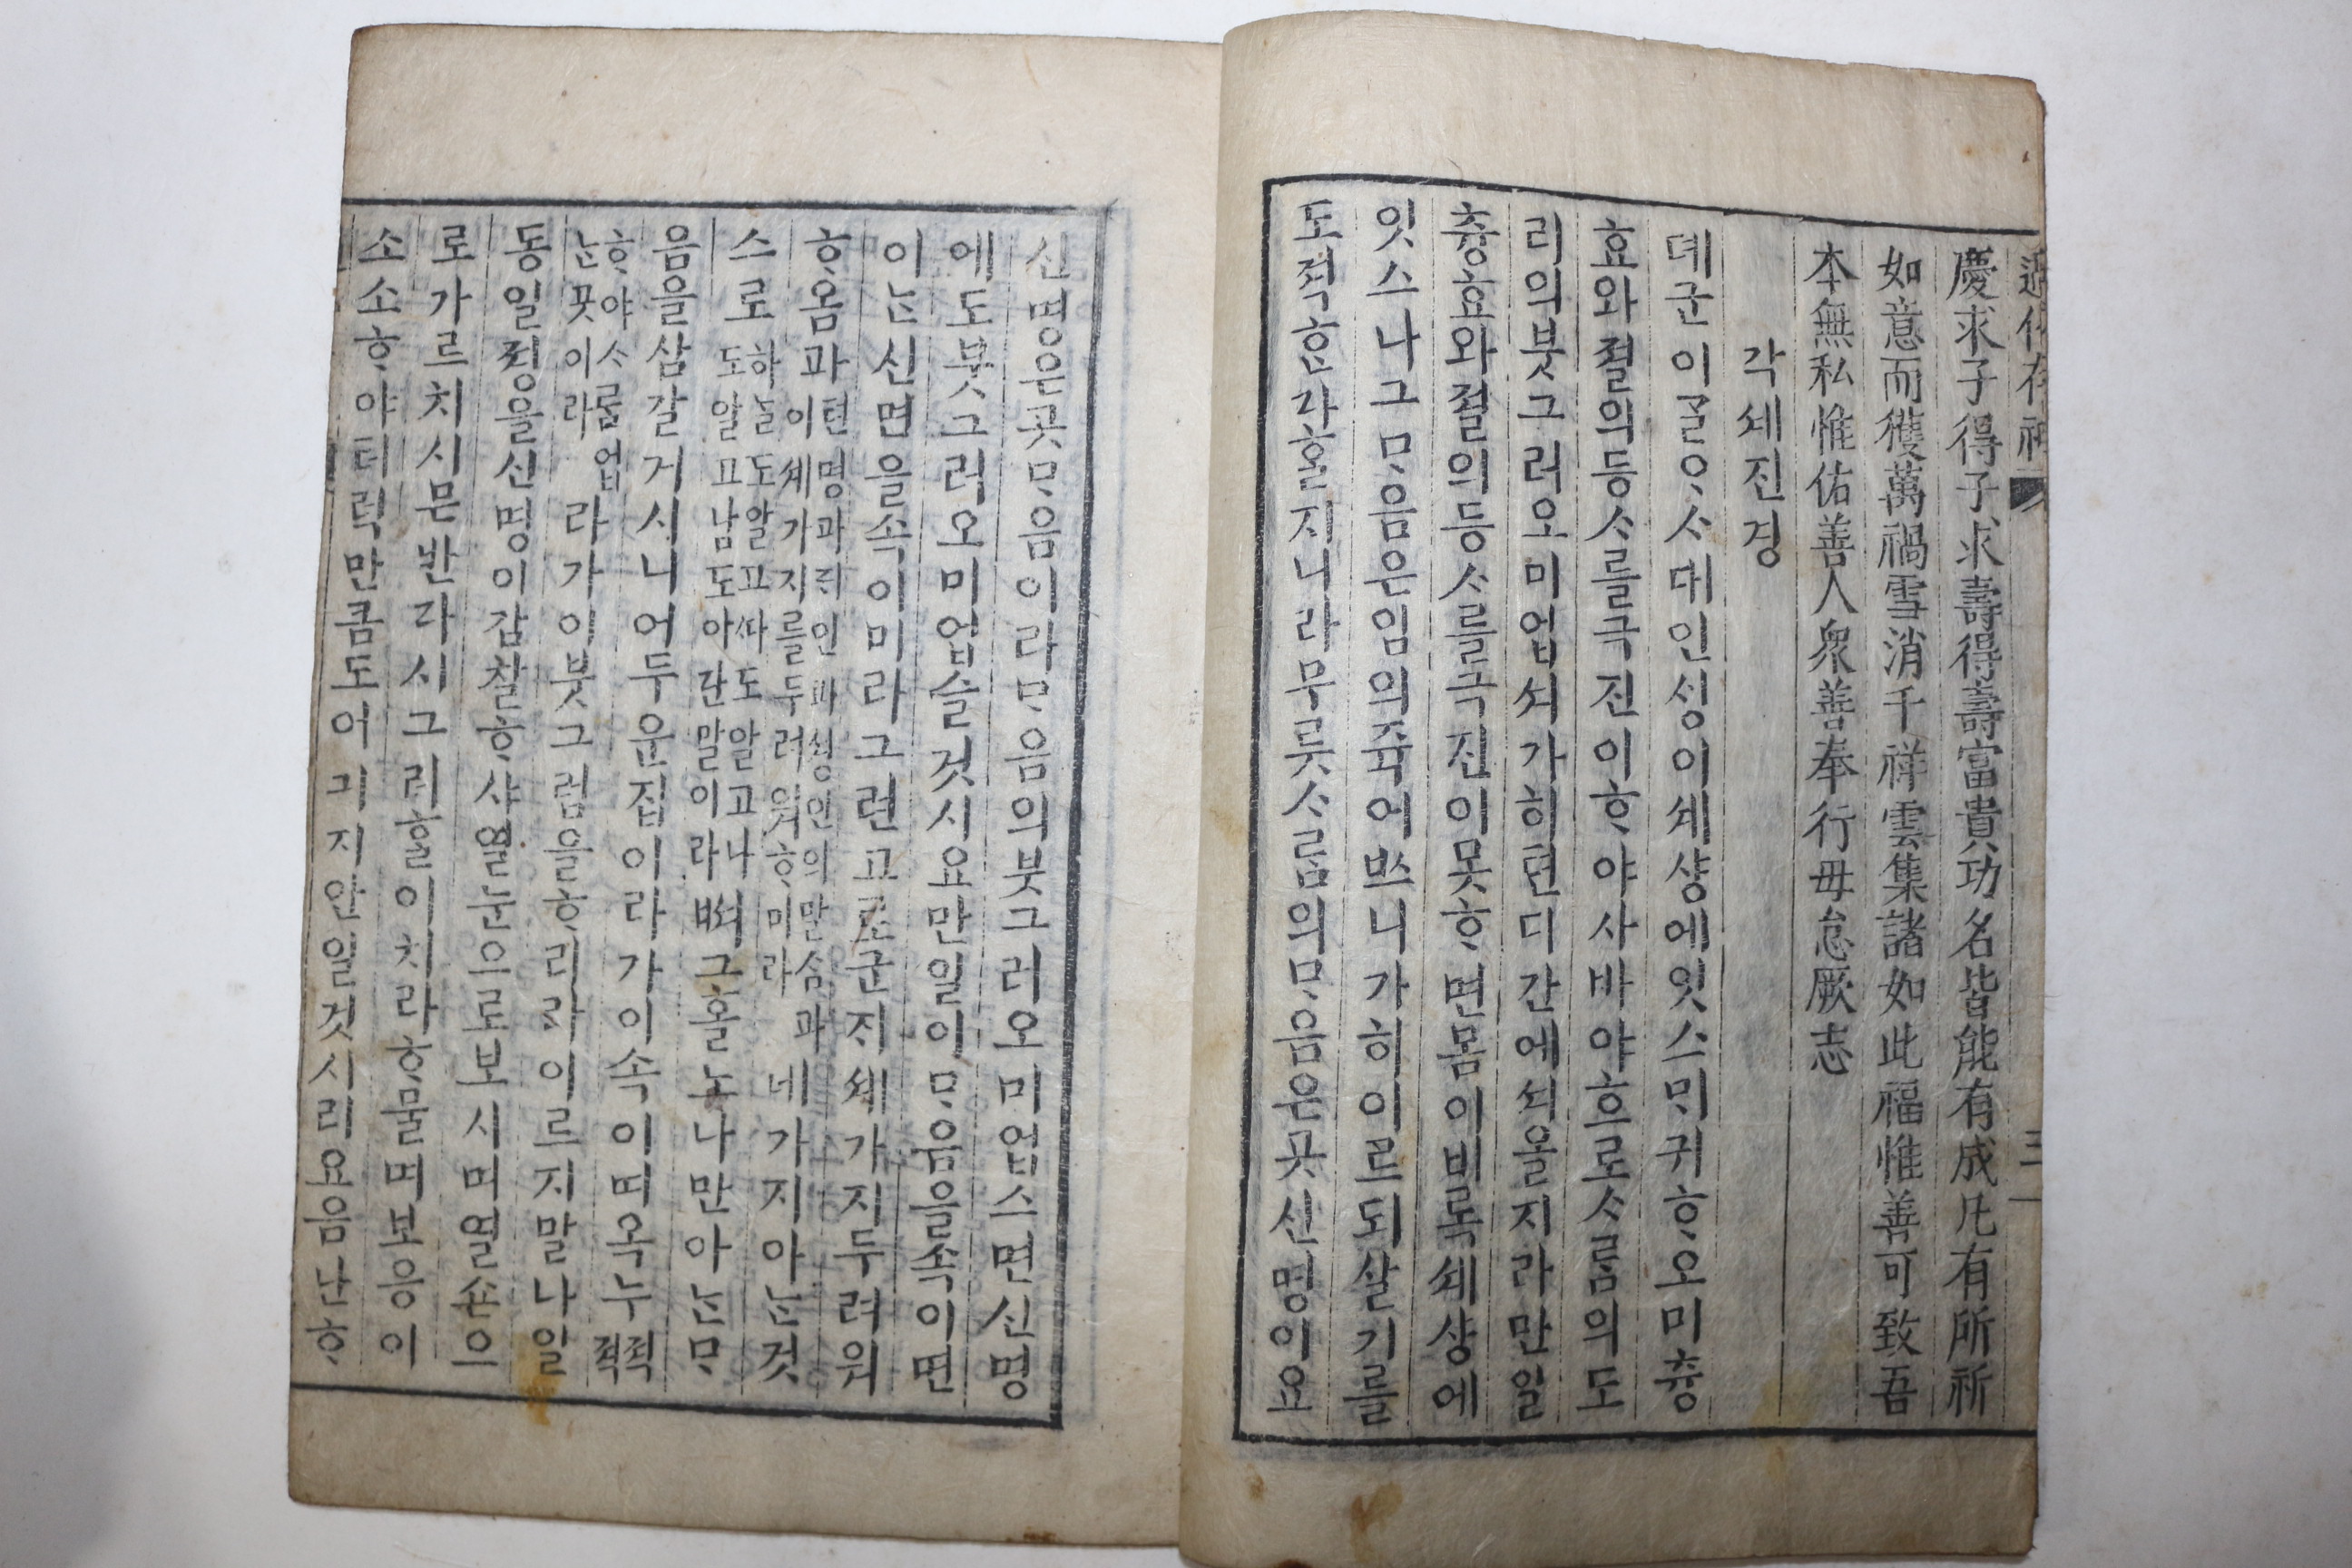 過化存神
三
慶求子得子求壽得壽富貴功名皆能有成凡有所祈
如意而獲萬禍雪消千祥雲集諸如此福惟善可致吾
本無私惟佑善人衆善奉行毋怠厥志
각셰진경
뎨군이ᄀᆞᆯᄋᆞᄉᆞ대인ᄉᆡᆼ이셰샹에잇스ᄆᆡ귀ᄒᆞ오미츙
효와졀의등ᄉᆞ를극진이ᄒᆞ야사바야흐로ᄉᆞ름의도
리의붓그러오미업셔가히텬디간에셔올지라만일
츙효와졀의등ᄉᆞ를극진이못ᄒᆞ면몸이비록셰샹에
잇스나그ᄆᆞ음은임의쥭어ᄡᅳ니가히이르되살기를
도젹ᄒᆞᆫ다ᄒᆞᆯ지니라무릇ᄉᆞ름의ᄆᆞ음은곳신명이요
신명은곳ᄆᆞ음이라ᄆᆞ음의붓그러오미업스면신명
에도붓그러오미업슬것시요만일이ᄆᆞ음을속이면
이ᄂᆞᆫ신명을속이미라그런고로군ᄌᆡ셰가지두려워
ᄒᆞ옴과
텬명과죄인과셩인의말ᄉᆞᆷ과
이셰가지를두려워ᄒᆞ미라
네가지아ᄂᆞᆫ것
스로
하ᄂᆞᆯ도알고ᄯᅡ도알고나
도알고남도아단말이라
ᄡᅥ그홀노나만아ᄂᆞᆫᄆᆞ
음을삼갈거시니어두운집이라가이속이며옥누
젹젹
ᄒᆞ야ᄉᆞ룸업
ᄂᆞᆫ곳이라
라가이붓그럼을ᄒᆞ리라이르지말나일
동일졍을신명이감찰ᄒᆞ샤열눈으로보시며열손으
로가르치시믄반다시그러ᄒᆞᆯ이치라ᄒᆞ물며보응이
소소ᄒᆞ야터럭만큼도어긔지안일것시리요음난ᄒᆞ